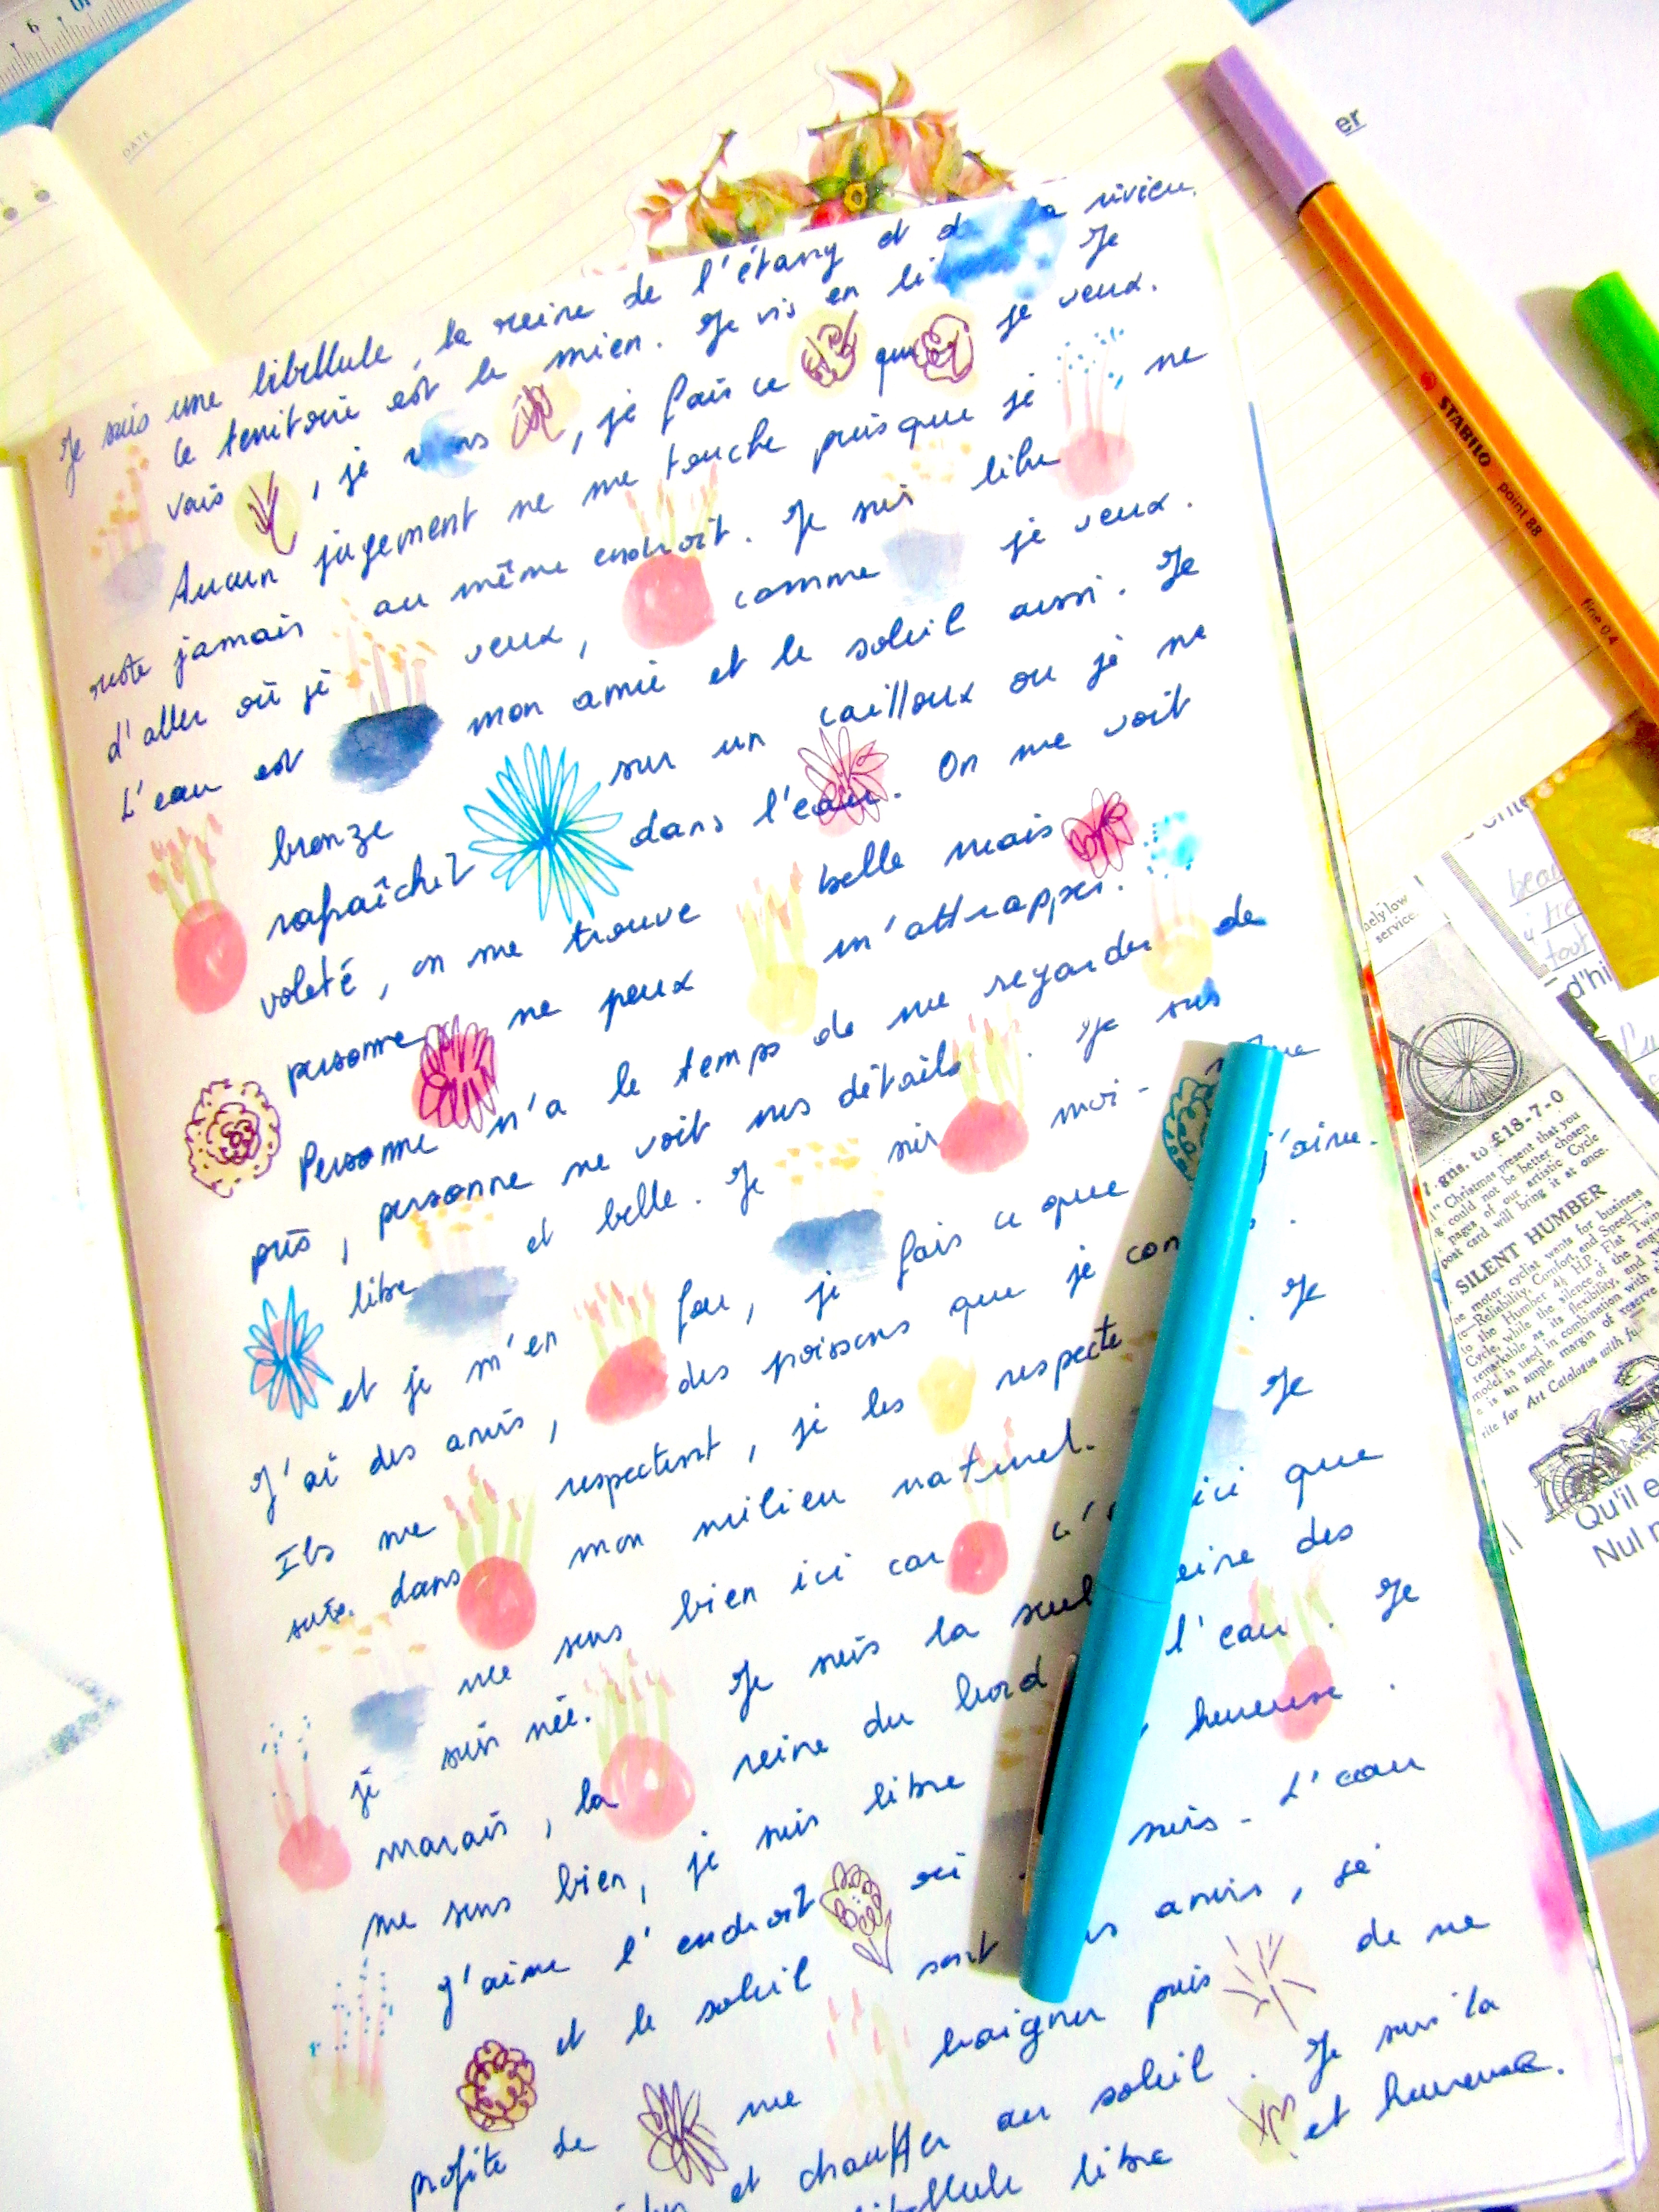 DATE
Je suis une libellule, la reine de l'étang et de la rivière.
Le territoire est le mien. Je vis en Je
vais , je viens , je fais ce que je veux.
Aucun jugement ne me touche puisque je ne
reste jamais au même endroit. Je suis libre
d'aller où je veux, comme je veux.
L'eau est mon amie et le soleil aussi. Je
bronze sur un cailloux ou je me
rafraîchit dans l'eau. On me voit
voleté, on me trouve belle mais
personne ne peux m'attrapper.
Personne n'a le temps de me regarder de
près, personne ne voit mes détails. Je suis
libre et belle. Je suis moi-même
et je m'en fou, je fais ce que j'aime.
J'ai des amis, des poissons que je
Ils me respectent, je les respecte. Je
suis dans mon milieu naturel. Je
me sens bien ici car c' ici que
je suis née. Je suis la seul reine des
marais, la reine du bord l'eau. Je
me sens bien, je suis libre heureuse.
J'aime l'endroit où suis. L'eau
et le soleil sont amis, je
profite de me baigner puis de me
et chauffer au soleil. Je suis la
libellule libre et heureuse.
STABILO point 88 fine 0.4
er
nely low
service.
beau
tout
d'hi
7-gns. to £18-7-0
Christmas present that you
could not be better chosen
pages of our artistic Cycle
post card will bring it at once.
SILENT HUMBER
Qu'il e
Nul n